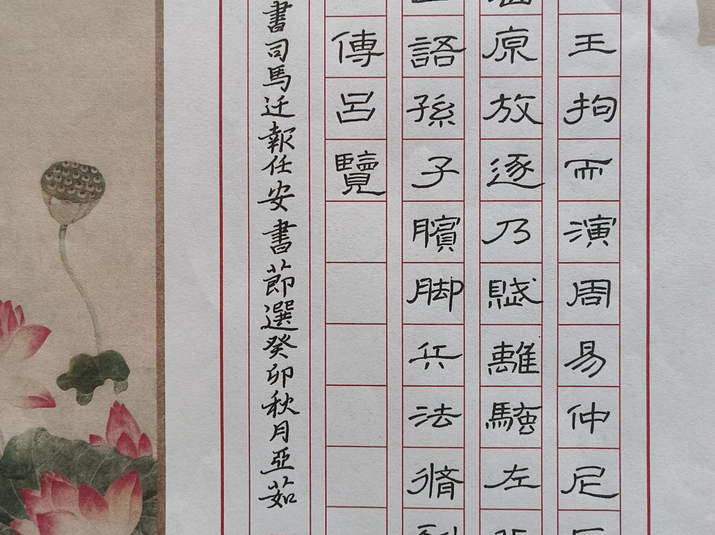 王拘而演周易仲尼
原放逐乃賦離騷左
語孫子臏脚兵法脩
傳呂覽
書司馬迁報任安書節選癸卯秋月亞茹